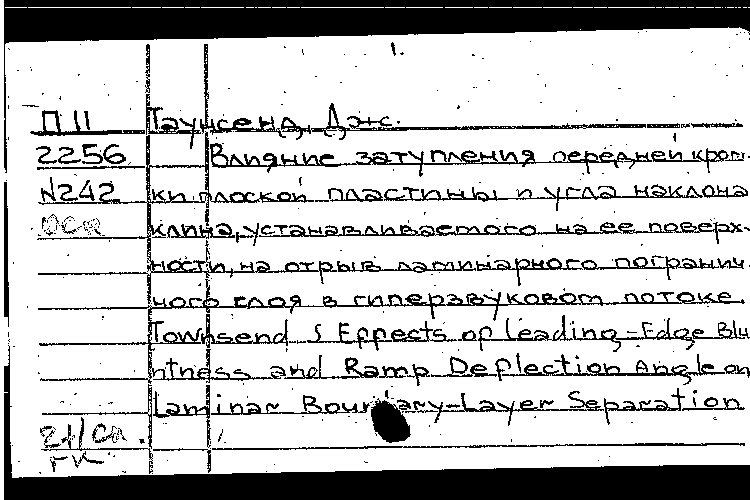 1.
П 11 Таунсенд, Дж.
2256 Влияние затупления передней кром-
N242 ки плоской пластины и угла наклона
клина, устанавливаемого на ее поверх-
ности, на отрыв ламинарного погранич
ного слоя в гиперзвуковом потоке.
Townsend J Effects of Leading-Edge Blu
ntness and Ramp Deflection Angle on
Laminar Boundary-Layer Separation